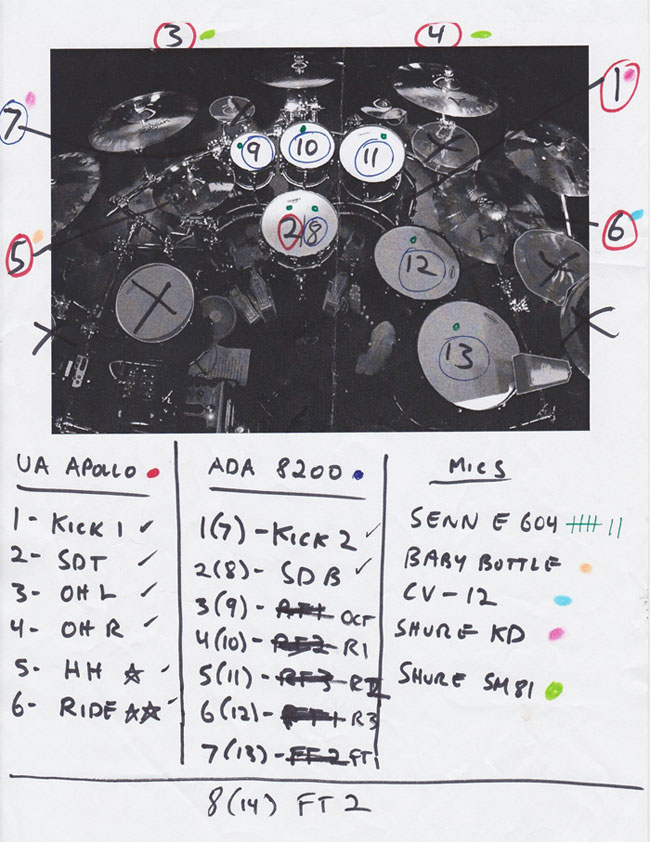 3
4
1
7
9
10
11
2/8
6
5
12
13
UA APOLLO
1- KICK 1 ✓
2- SDT ✓
3- OH L ✓
4- OH R ✓
5- HH ☆ ✓
6- RIDE ☆☆ ✓
ADA 8200
1(7)- KICK 2 ✓
2(8)- SDB ✓
3(9)- RT1 OCT
4(10)- RT2 R1
5(11)- RT3 R2
6(12)- FT1 R3
7(13)- FT2 FT1
8(14) FT 2
MICS
SENN E 604 卌 II
BABY BOTTLE
CV-12
SHURE KD
SHURE SM81